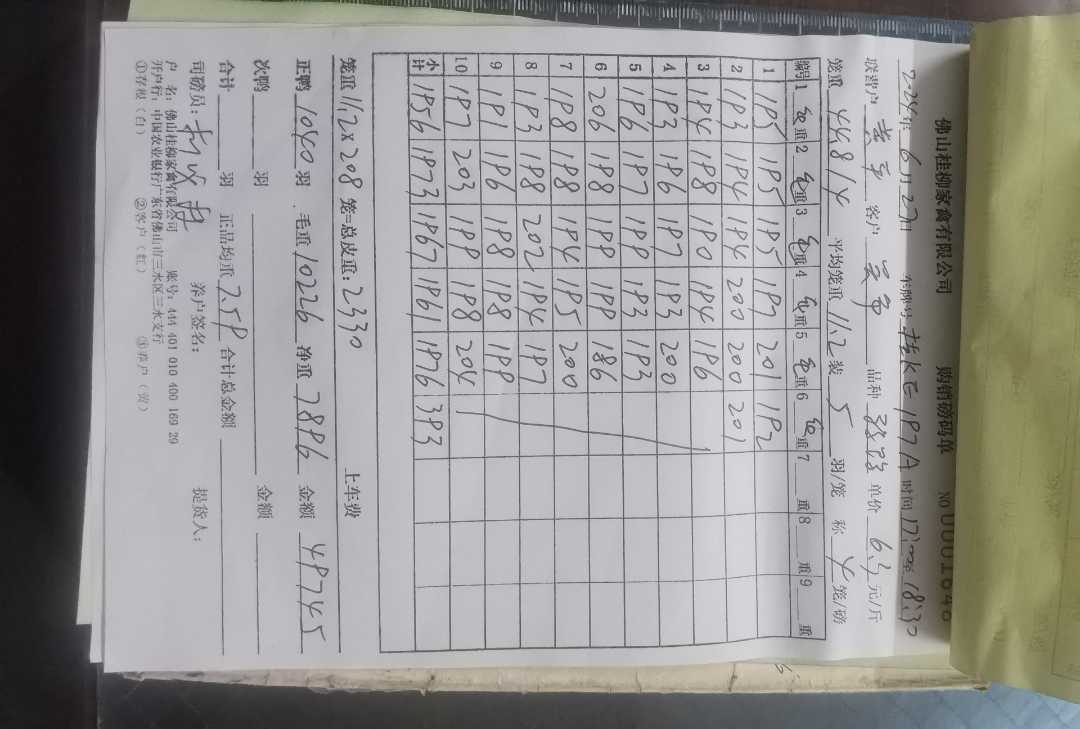 佛山桂柳家禽有限公司 购销磅码单 NO 0001646
2024年6月27日 车牌号 桂KE197A 时间 17:00至18:30
联营户 客户 品种 单价 6.3 元/斤
笼重 448/4 平均笼重 11.2 装 5 羽/笼 称 4 笼/磅
编号 1 毛重 2 毛重 3 毛重 4 毛重 5 毛重 6 毛重 7 重 8 重 9 重
1 195 195 195 197 201 192
2 193 194 194 200 200 201
3 194 198 190 194 196
4 193 196 197 193 200
5 196 197 199 193 193
6 206 198 198 199 186
7 198 198 194 195 200
8 193 198 202 194 197
9 191 196 198 198 199
10 197 203 199 198 204
小计 1956 1973 1967 1961 1976 393
笼重 11.2×208 笼=总皮重: 2330 上车费
正鸭 1040 羽 毛重 10226 净重 7896 金额 49745
次鸭 羽 金额
合计 羽 正品均重 7.59 合计总金额
司磅员: 养户签名: 提货人:
户 名: 佛山桂柳家禽有限公司 账号: 444 401 010 400 169 29
开户行: 中国农业银行广东省佛山市三水区三水支行
①存根(白) ②客户(红) ③养户(黄)